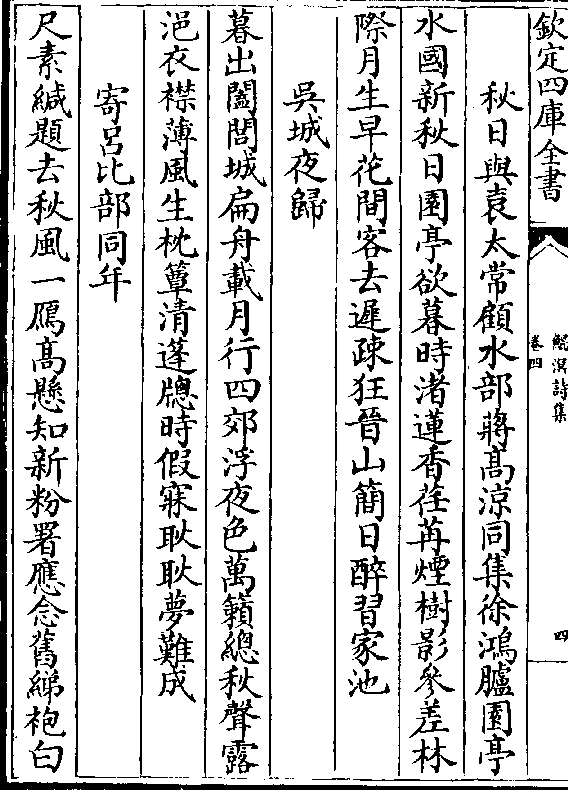 欽定四庫全書
鯤溟詩集
卷四
四
秋日與袁太常顧水部蔣髙涼同集徐鴻臚園亭
水國新秋日園亭欲暮時渚蓮香荏苒煙樹影參差林
際月生早花間客去遲疎狂晉山簡日醉習家池
吳城夜歸
暮出闔閭城扁舟載月行四郊浮夜色萬籟總秋聲露
浥衣襟薄風生枕簟清蓬牕時假寐耿耿夢難成
寄呂比部同年
尺素緘題去秋風一鴈髙懸知新粉署應念舊綈袍白